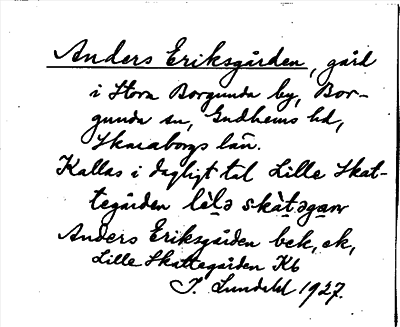 Anders Eriksgården, gård
i Stora Borgunda by, Bor-
gunda sn, Gudhems hd,
Skaraborgs län.
Kallas i dagligt tal Lille Skat-
tegården lìlə skàtəgaɳ
Anders Eriksgården bek, ek,
Lille Skattegården Kb
J. Lundahl 1927.